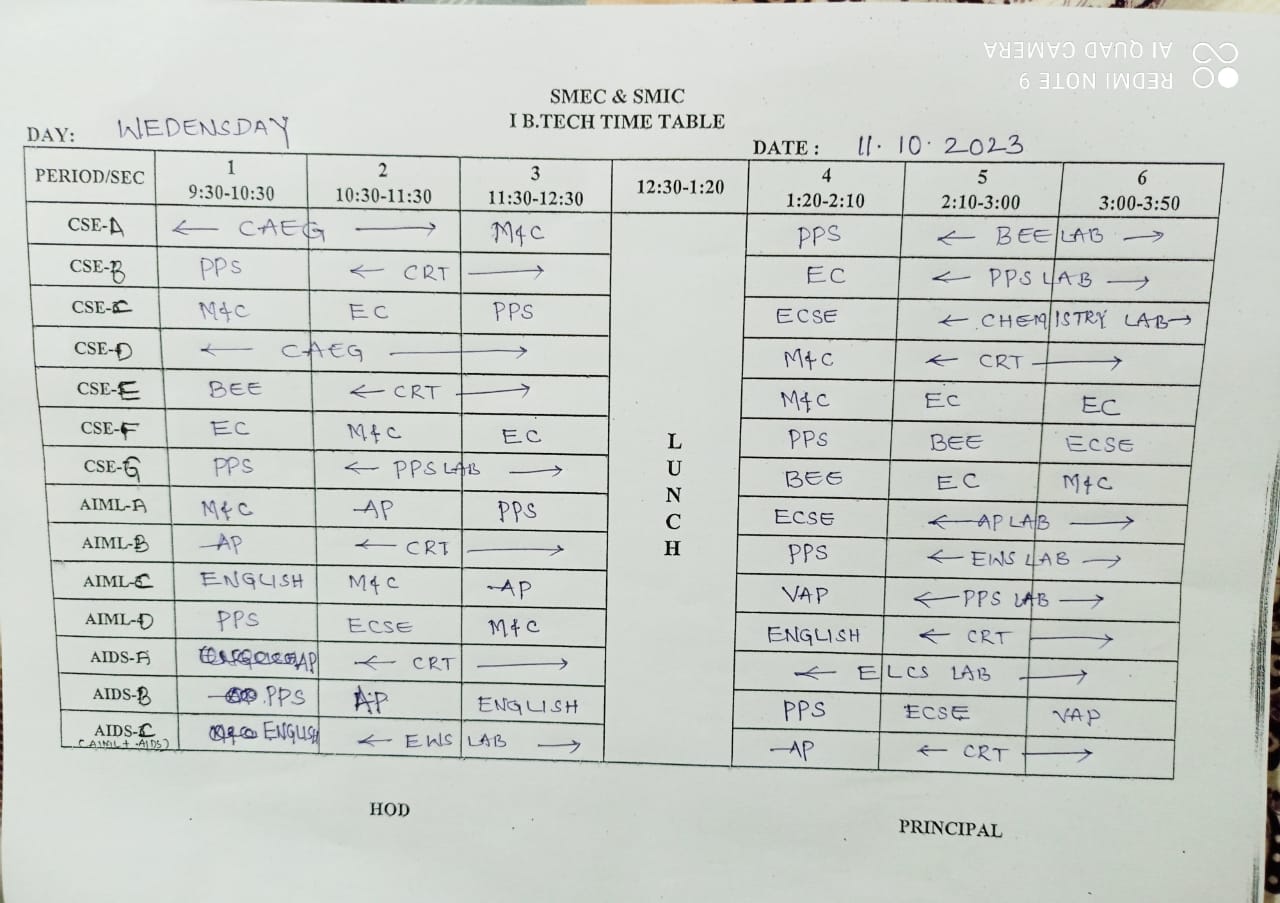 AI QUAD CAMERA
REDMI NOTE 9
SMEC & SMIC
I B.TECH TIME TABLE
DAY: WEDENSDAY
DATE : 11.10.2023
PERIOD/SEC 1 9:30-10:30 2 10:30-11:30 3 11:30-12:30 12:30-1:20 4 1:20-2:10 5 2:10-3:00 6 3:00-3:50
CSE-A ← CAEG → M&C PPS ← BEE LAB →
CSE-B PPS ← CRT → EC ← PPS LAB →
CSE-C M&C EC PPS ECSE ← CHEMISTRY LAB →
CSE-D ← CAEG → M&C ← CRT →
CSE-E BEE ← CRT → M&C EC EC
CSE-F EC M&C EC PPS BEE ECSE
CSE-G PPS ← PPS LAB → BEE EC M&C
AIML-A M&C AP PPS ECSE ← AP LAB →
AIML-B AP ← CRT → PPS ← EWS LAB →
AIML-C ENGLISH M&C AP VAP ← PPS LAB →
AIML-D PPS ECSE M&C ENGLISH ← CRT →
AIDS-A AP ← CRT → ← ELCS LAB →
AIDS-B PPS AP ENGLISH PPS ECSE VAP
AIDS-C (AIML + AIDS) ENGLISH ← EWS LAB → AP ← CRT →
LUNCH
HOD
PRINCIPAL